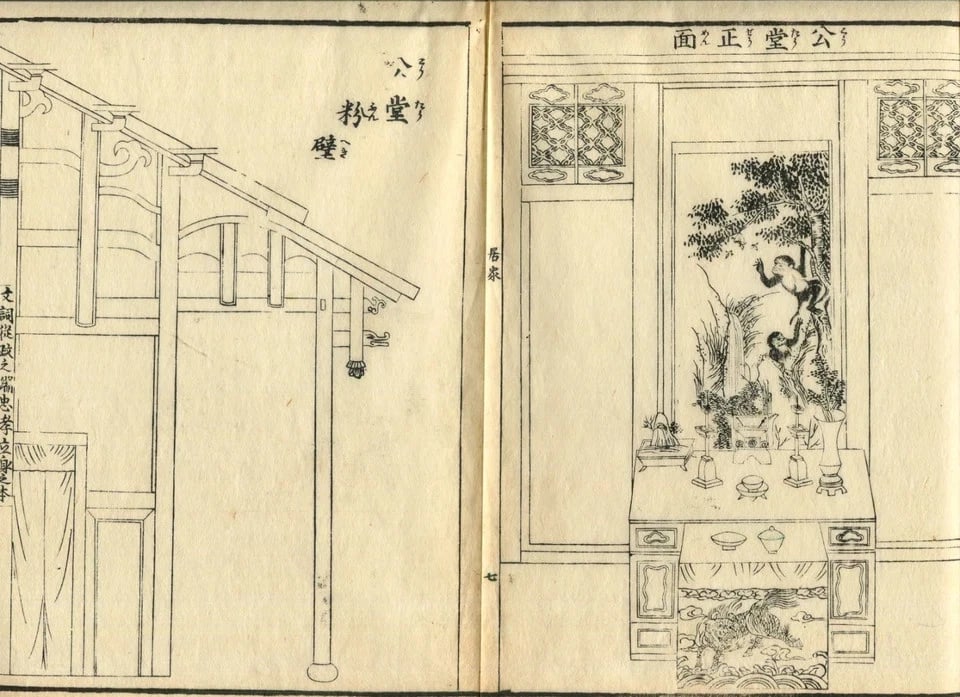 公堂正面
居家
七
公堂粉壁
文詞從政之端忠孝立身之本